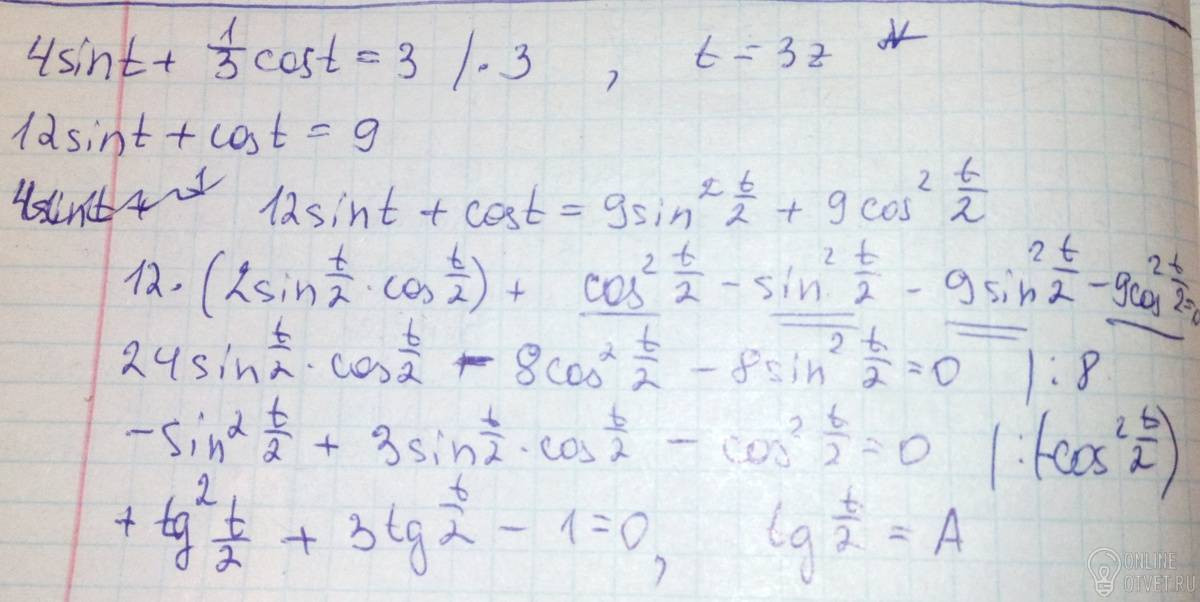 4sint + 1/3 cost = 3 /·3 , t = 3z
12sint + cost = 9
4sint + 1 12sint + cost = 9sin² t/2 + 9cos² t/2
12·(2sin t/2 · cos t/2) + cos² t/2 - sin² t/2 - 9sin² t/2 - 9cos² t/2 = 0
24sin t/2 · cos t/2 - 8cos² t/2 - 8sin² t/2 = 0 |:8
-sin² t/2 + 3sin t/2 · cos t/2 - cos² t/2 = 0 |:(-cos² t/2)
+ tg² t/2 + 3tg t/2 - 1 = 0, tg t/2 = A
ONLINE
OTVET.RU